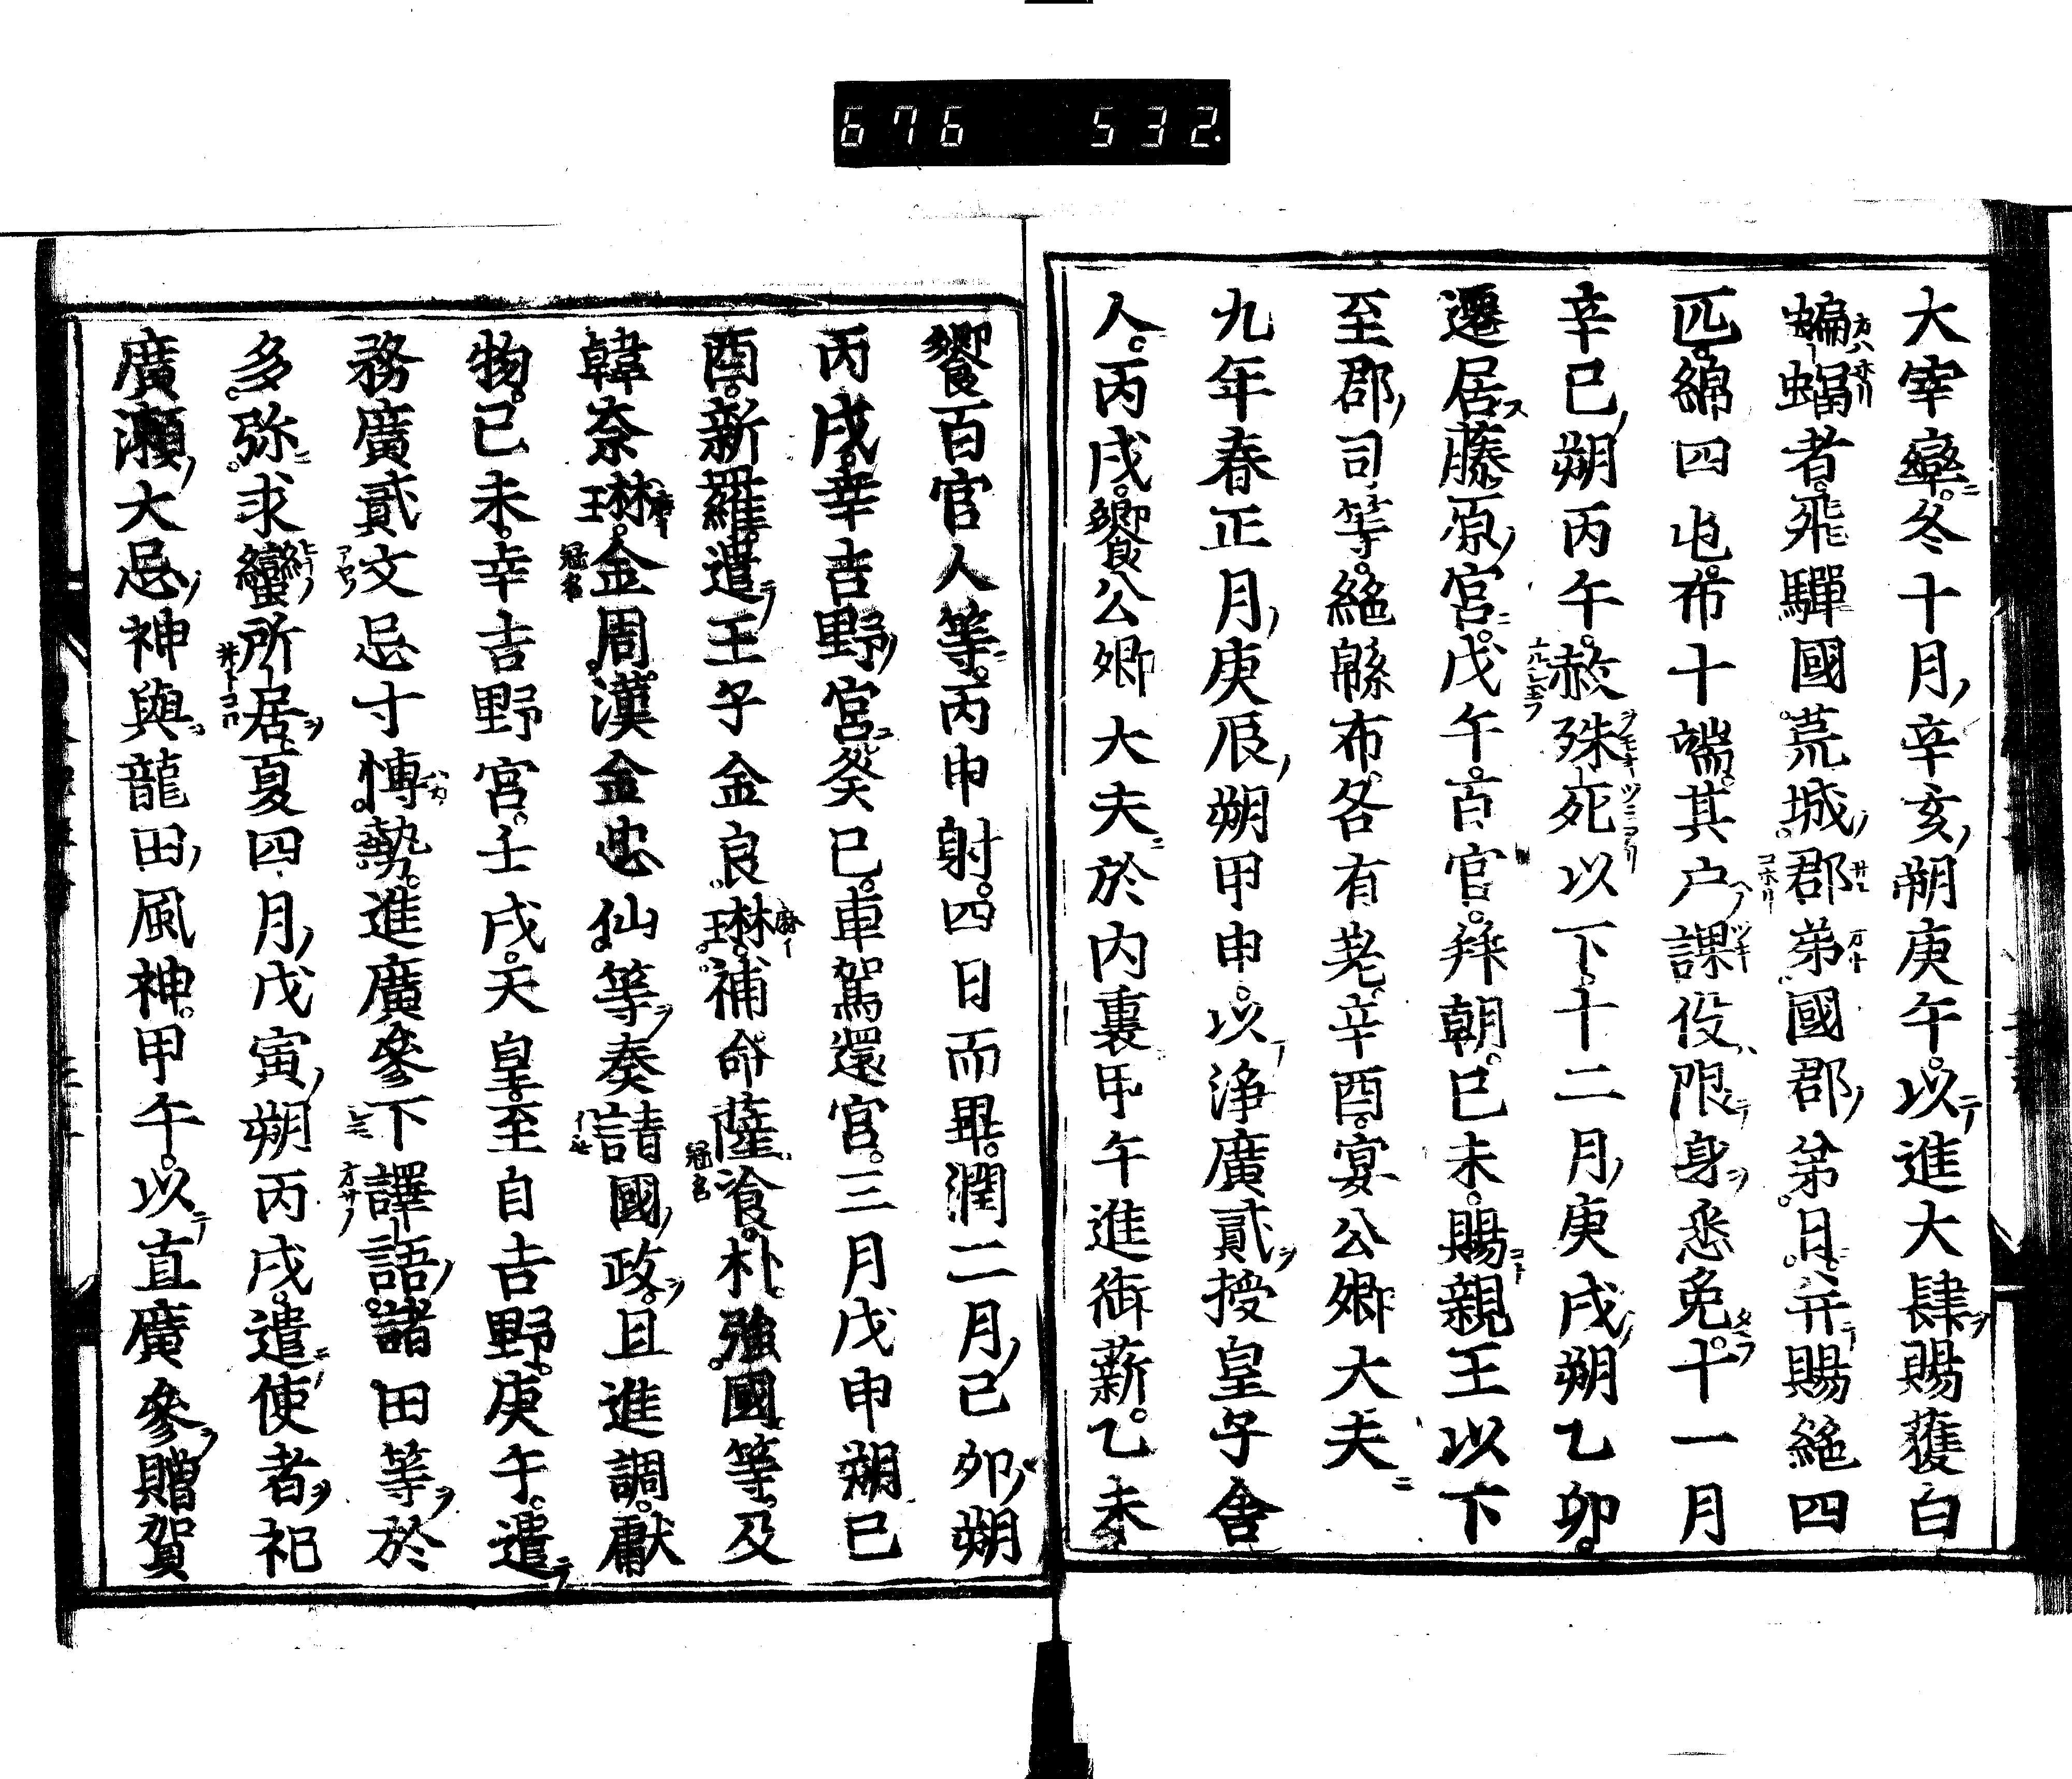 676 532.
大宰率冬十月辛亥朔庚午以進大肆賜獲白
蝙蝠者飛驒國荒城郡弟國郡弟日并賜絁四
匹綿四屯布十端其户課役限身悉免十一月
辛巳朔丙午赦殊死以下十二月庚戌朔乙卯
遷居藤原宮戊午百官拜朝己未賜親王以下
至郡司等絁緜布各有差辛酉宴公卿大夫
九年春正月庚辰朔甲申以浄廣貳授皇子舎
人丙戌饗公卿大夫於内裏甲午進御薪乙未
饗百官人等丙申射四日而畢潤二月己卯朔
丙戌幸吉野宮癸巳車駕還宮三月戊申朔己
酉新羅遣王子金良琳補命薩飡朴強國等及
韓奈琳金周漢金忠仙等奏請國政且進調獻
物己未幸吉野宮壬戌天皇至自吉野庚午遣
務廣貳文忌寸博勢進廣參下譯語諸田等於
多弥求蠻所居夏四月戊寅朔丙戌遣使者祀
廣瀬大忌神與龍田風神甲午以直廣參贈賀